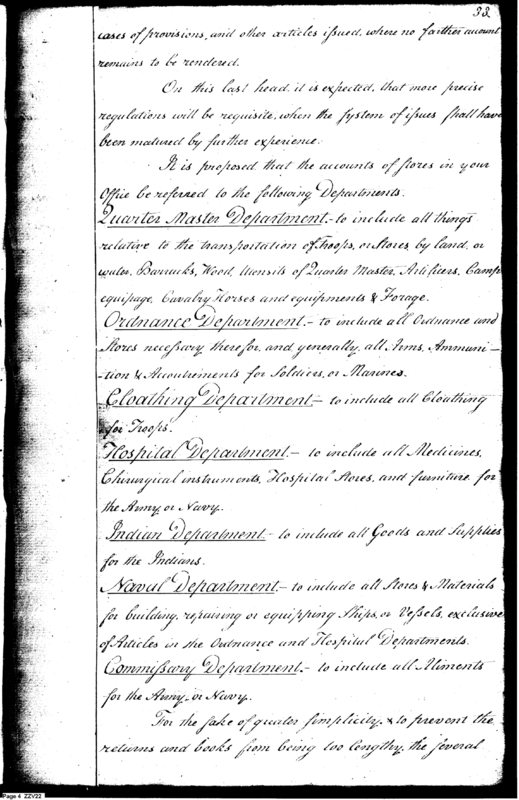 33
cases of provisions, and other articles issued, where no farther account
remains to be rendered.
On this last head, it is expected, that more precise
regulations will be requisite, when the system of issues shall have
been matured by further experience.
It is proposed that the accounts of stores in your
Office be referred to the following Departments.
Quarter Master Department.- to include all things
relative to the transportation of Troops, or Stores by land, or
water, Barracks, Wood, Utensils of Quarter Master, Artificers, Camp
equipage, Cavalry Horses and equipments & Forage.
Ordnance Department.- to include all Ordnance and
Stores necessary therefor, and generally all Arms, Ammuni-
-tion & Accoutrements for Soldiers, or Marines.
Cloathing Department.- to include all Cloathing
for Troops.
Hospital Department.- to include all Medicines,
Chirurgical instruments, Hospital Stores, and furniture for
the Army, or Navy.
Indian Department.- to include all Goods and Supplies
for the Indians.
Naval Department.- to include all Stores & Materials
for building, repairing or equipping Ships, or Vessels, exclusive
of Articles in the Ordnance and Hospital Departments.
Commissary Department.- to include all Aliments
for the Army, or Navy.
For the sake of greater simplicity, & to prevent the
returns and books from being too lengthy, the several
Page 4 ZZV22